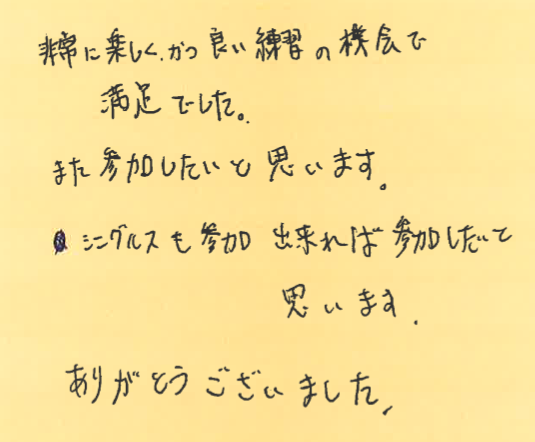 非常に楽しく、かつ良い練習の機会で
満足でした。
また参加したいと思います。
シングルスも参加出来れば参加したいと
思います.
ありがとうございました,